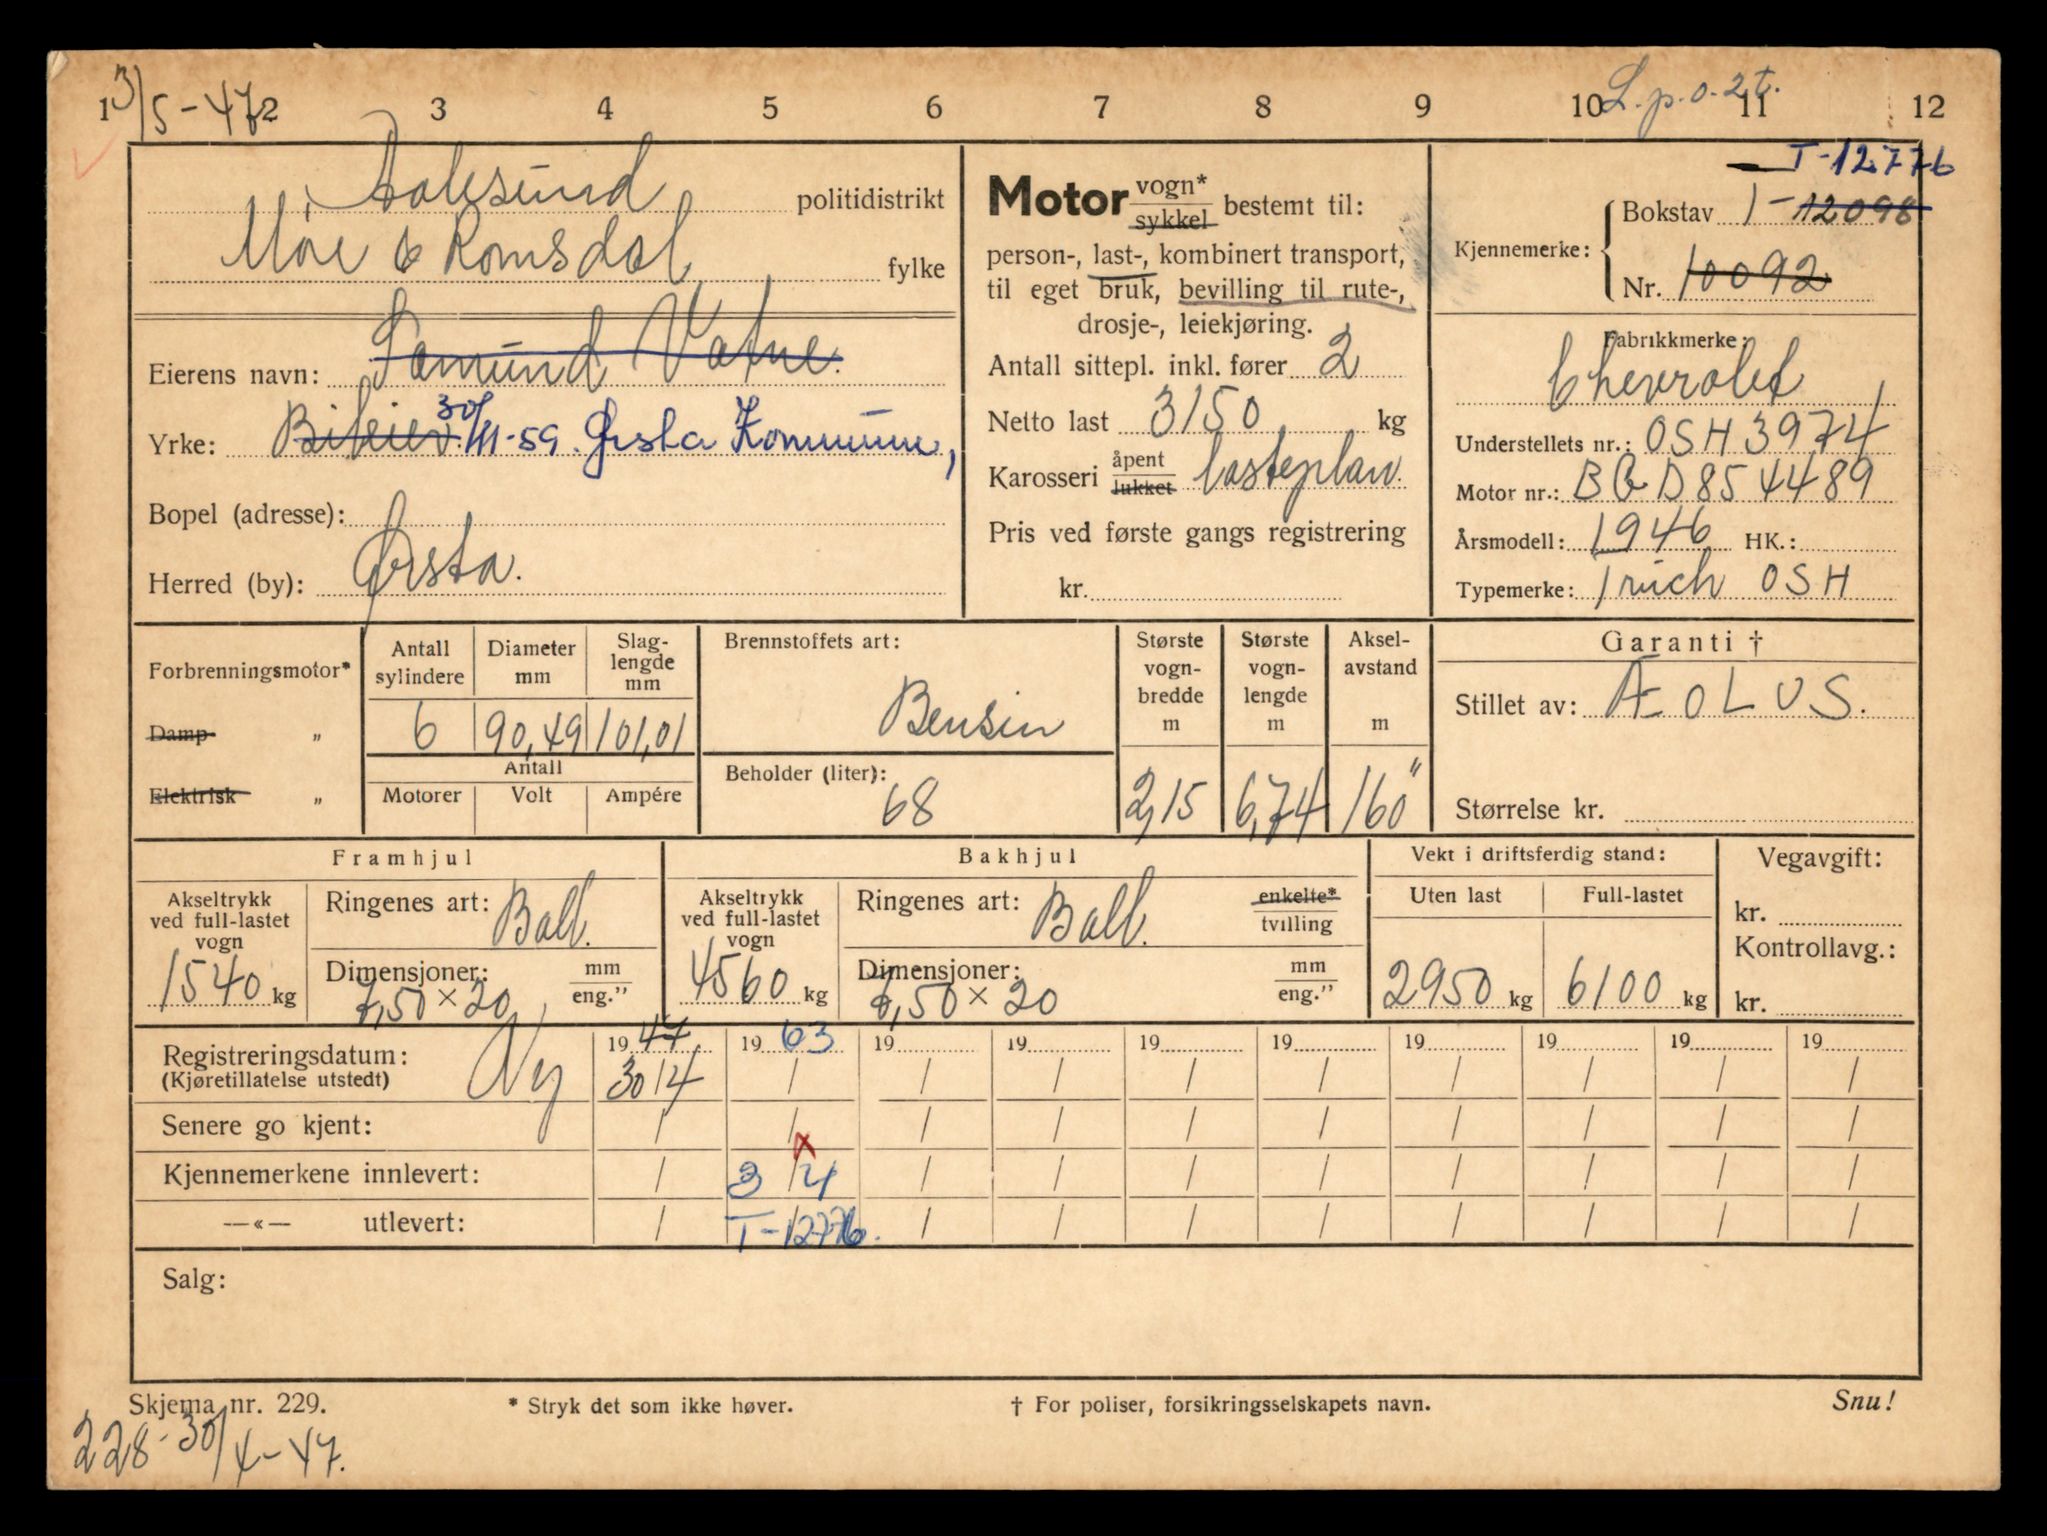 3/5-47
L.p.o.2t.
1 2 3 4 5 6 7 8 9 10 11 12
Aalesund politidistrikt
Møre & Romsdal fylke
Eierens navn: Samund Vatne.
Yrke: Bileier. 30/11-59. Ørsta Kommune,
Bopel (adresse):
Herred (by): Ørsta.
Motor vogn* sykkel bestemt til:
person-, last-, kombinert transport,
til eget bruk, bevilling til rute-,
drosje-, leiekjøring.
Antall sittepl. inkl. fører 2
Netto last 3150 kg
Karosseri åpent lukket lasteplan.
Pris ved første gangs registrering
kr.
T-12776
Kjennemerke: Bokstav T-12098
Nr. 10092
Fabrikkmerke:
Chevrolet
Understellets nr.: OSH 3974
Motor nr.: BGD854489
Årsmodell: 1946 HK.:
Typemerke: Truck OSH
Forbrenningsmotor*
Damp „
Elektrisk „
Antall sylindere 6
Diameter mm 90,49
Slaglengde mm 101,01
Antall
Motorer Volt Ampére
Brennstoffets art:
Bensin
Beholder (liter):
68
Største vognbredde m 2,15
Største vognlengde m 6,74
Akselavstand m 160"
Garanti †
Stillet av: ÆOLUS.
Størrelse kr.
Framhjul
Akseltrykk ved full-lastet vogn 1540 kg
Ringenes art: Ball.
Dimensjoner: mm eng.”
7,50×20
Bakhjul
Akseltrykk ved full-lastet vogn 4560 kg
Ringenes art: Ball. enkelte* tvilling
Dimensjoner: mm eng.”
7,50×20
Vekt i driftsferdig stand:
Uten last Full-lastet
2950 kg 6100 kg
Vegavgift:
kr.
Kontrollavg.:
kr.
Registreringsdatum: Ny 1947 1963 19 19 19 19 19 19 19 19
(Kjøretillatelse utstedt) 30/4 / / / / / / / / /
Senere go kjent: / / / / / / / / / /
Kjennemerkene innlevert: / 3/4 x / / / / / / / /
—«— utlevert: / T-12776. / / / / / / / /
Salg:
Skjema nr. 229. * Stryk det som ikke høver. † For poliser, forsikringsselskapets navn. Snu!
228-30/4-47.